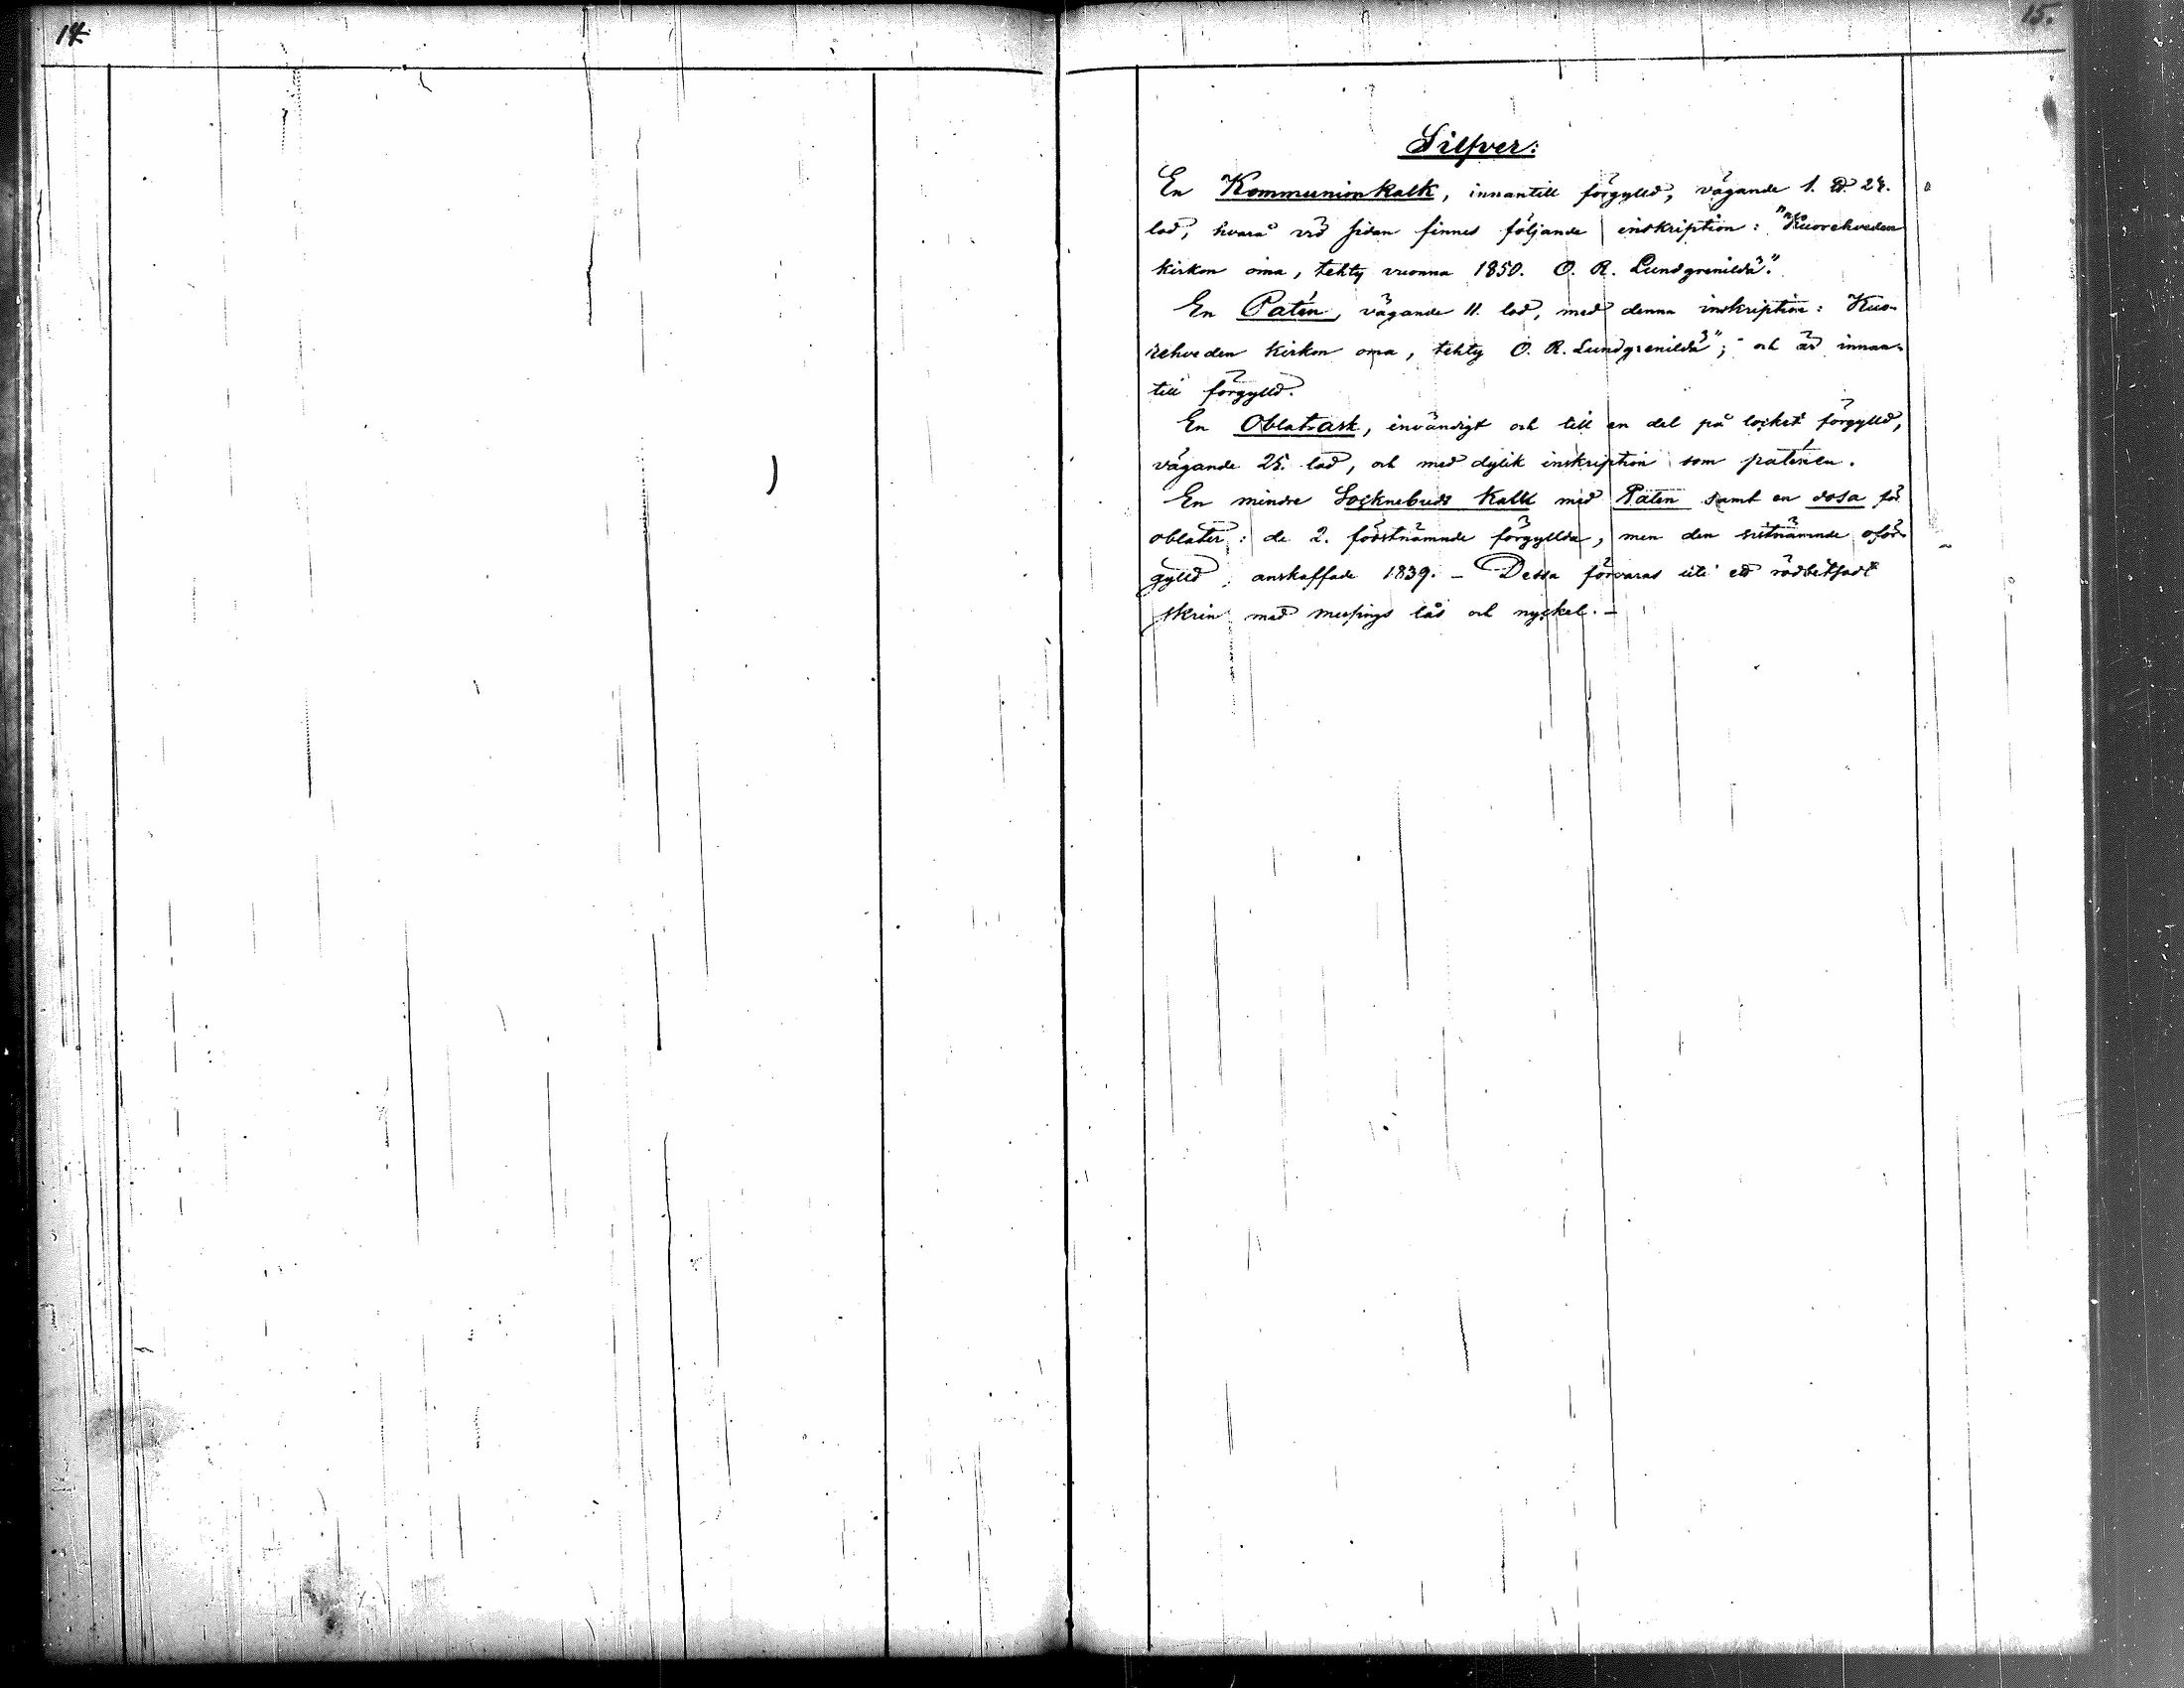 14.
15.
Silfver:
En Kommunionkalk, innantill förgylld, vägande 1. ℔ 24.
lod, hvarå vid sidan finnes följande inskription: "Kuorehveden
kirkon oma, tehty vuonna 1850. O. R. Lundgrenildä".
En Patén, vägande 11. lod, med denna inskription: Kuo-
rehveden kirkon oma, tehty O. R. Lundgrenildä"; och är innan-
till förgylld.
En Oblat-ask, invändigt och till en del på locket förgylld,
vägande 25. lod, och med dylik inskription som paténen.
En mindre Socknebuds Kalk med Patén samt en dosa för
oblater: de 2. förstnämnde förgyllda, men den sistnämnde oför-
gylld, anskaffade 1839. – Dessa förvaras uti ett rödbetsadt
skrin med messings lås och nyckel. –